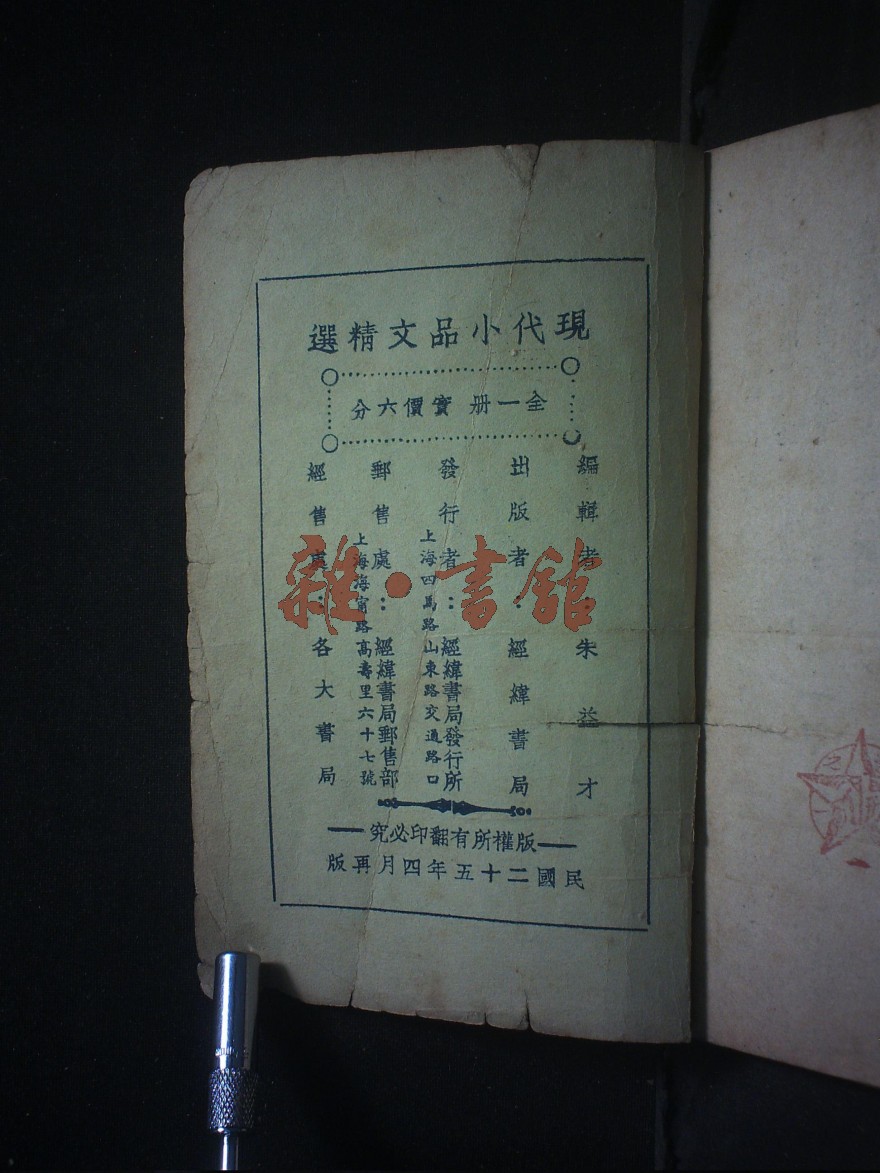 現代小品文精選
全一册 實價六分
編輯者：朱益才
出版者：經緯書局
發行者：經緯書局發行所
上海四馬路山東路交通路口
郵售處：經緯書局郵售部
上海海甯路高壽里六十七號
經售處：各大書局
——版權所有翻印必究——
民國二十五年四月再版
雜·書館